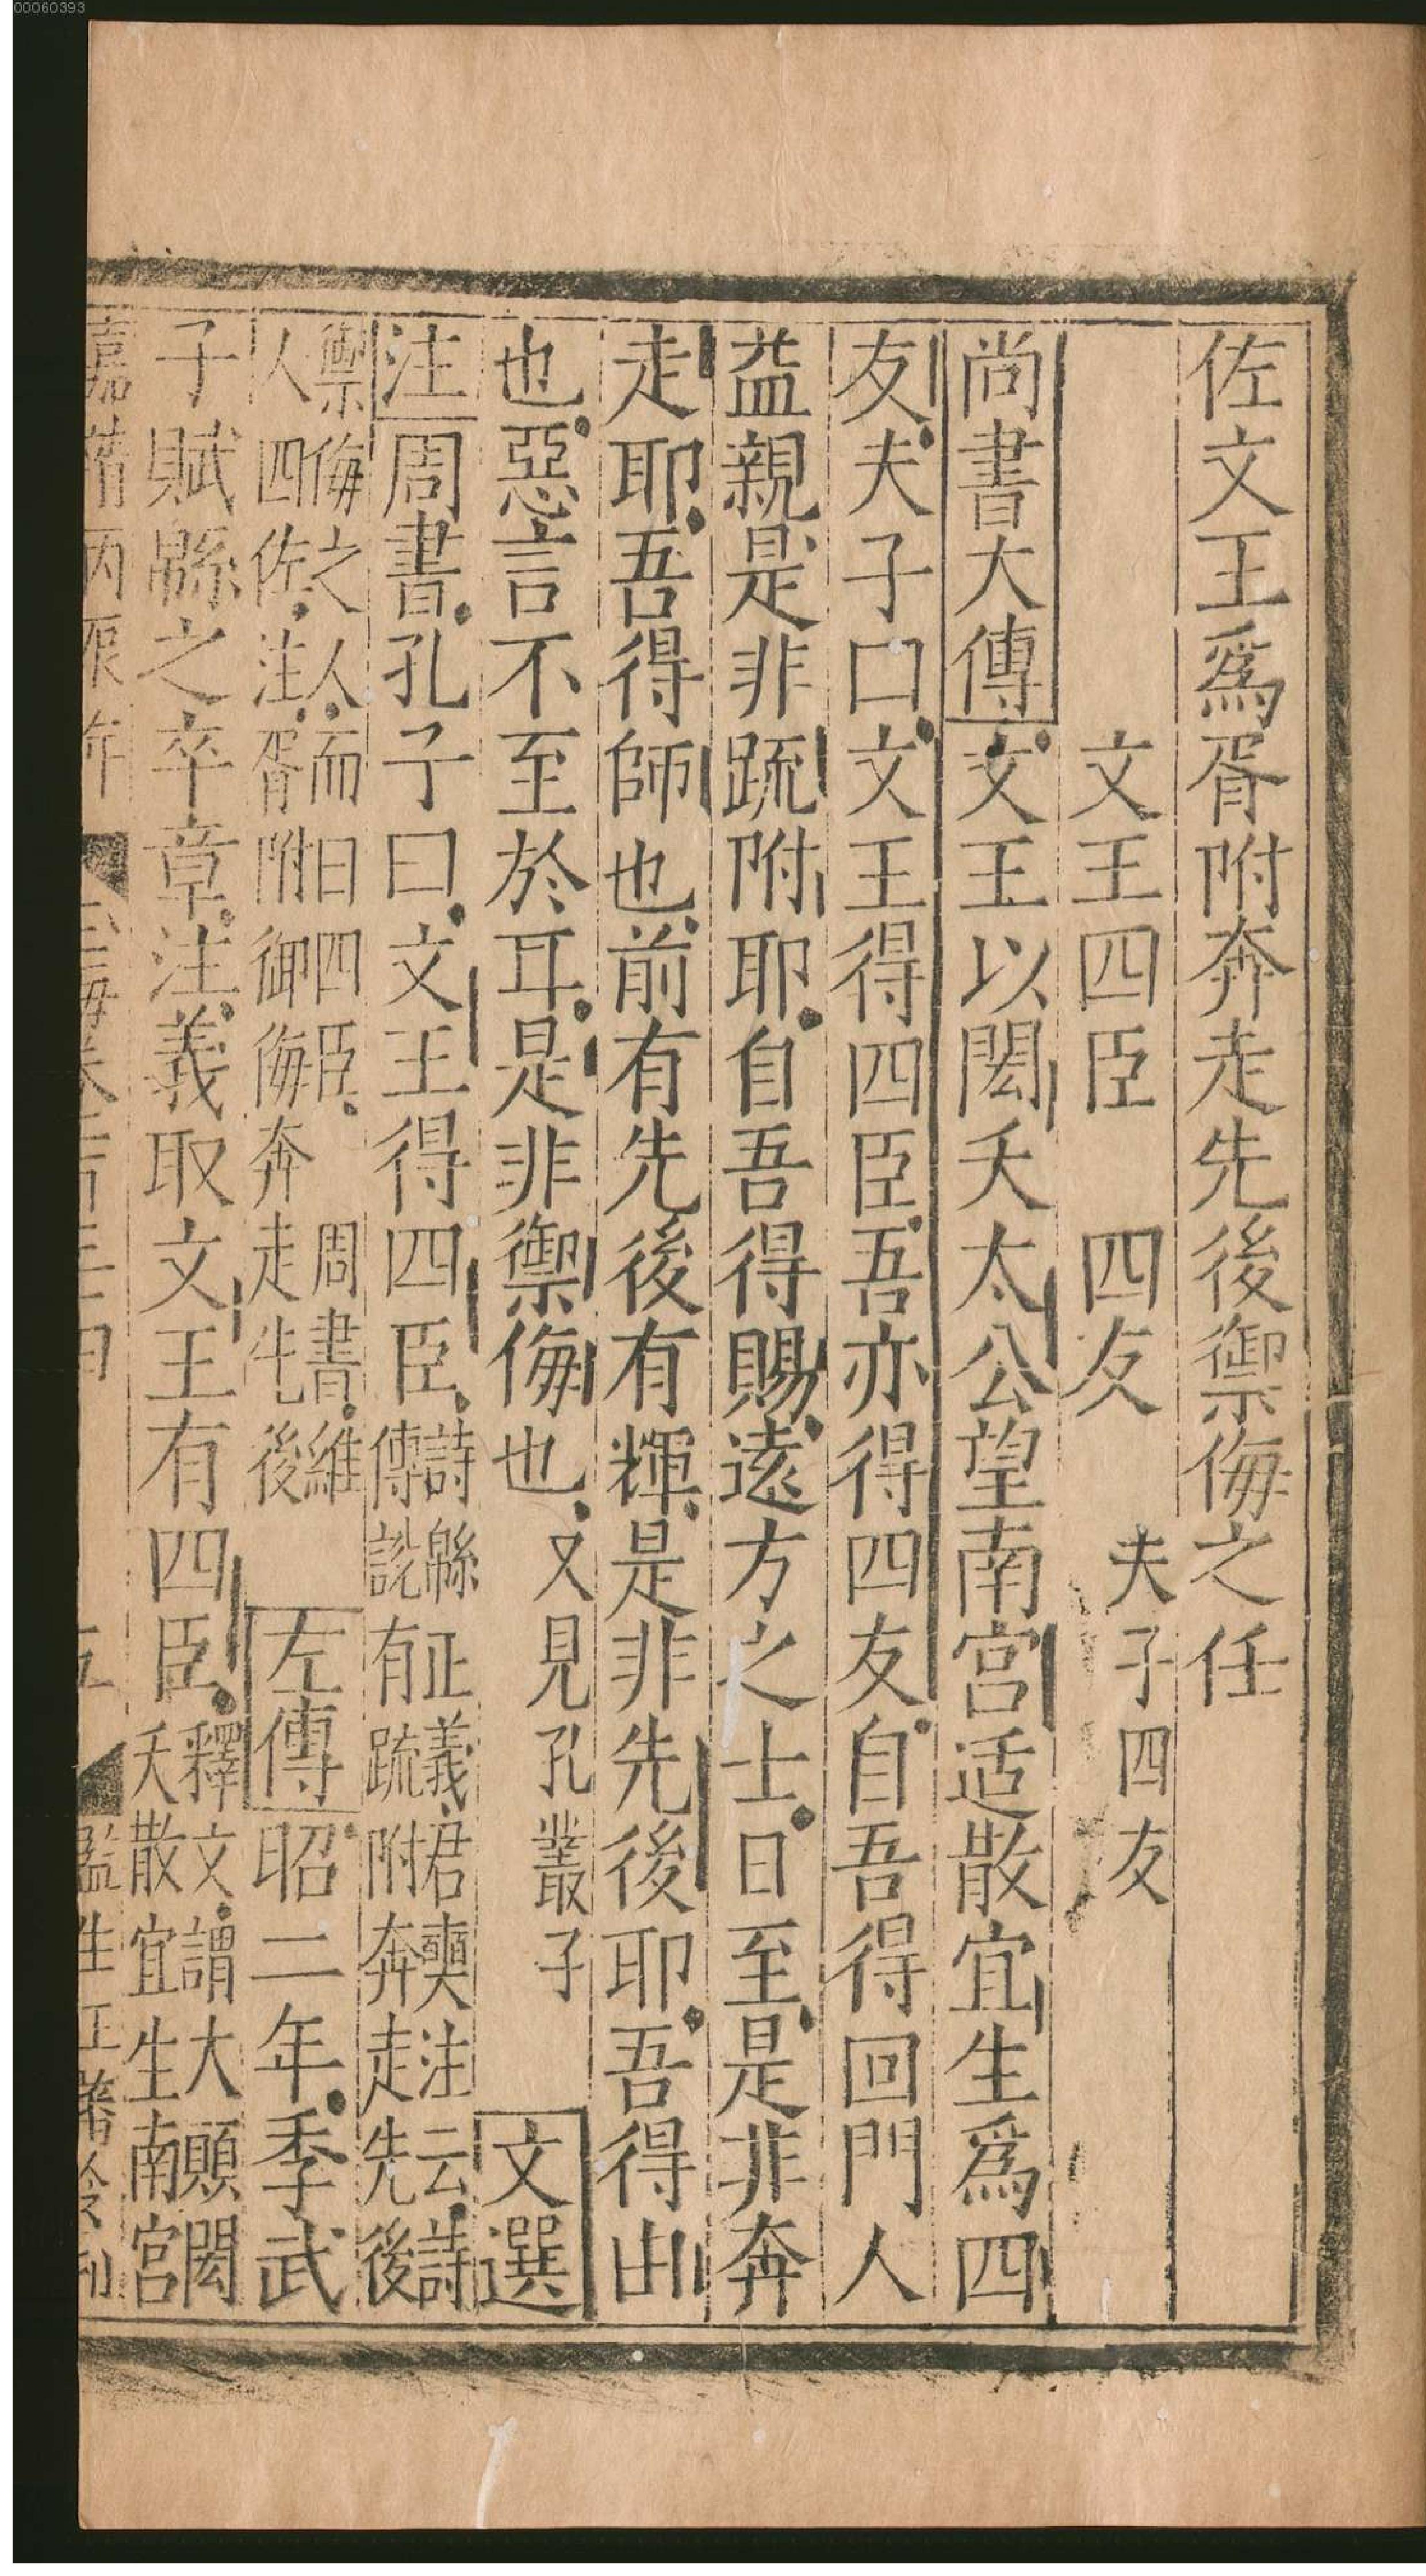 00060393
佐文王爲胥附奔走先後禦侮之任
文王四臣　四友　夫子四友
尚書大傳文王以閎夭太公望南宮适散宜生爲四
友夫子曰文王得四臣吾亦得四友自吾得回門人
益親是非䟽附耶自吾得賜遠方之士日至是非奔
走耶吾得師也前有先後有輝是非先後耶吾得由
也惡言不至於耳是非禦侮也又見孔叢子　文選
注周書孔子曰文王得四臣詩緜正義君奭注云詩
傳說有䟽附奔走先後
禦侮之人而曰四臣　周書維
人四佐注胥附御侮奔走先後
左傳昭二年季武
子賦緜之卒章注義取文王有四臣釋文謂大顚閎
夭散宜生南宮
嘉靖丙辰年
玉海卷
監生
刊